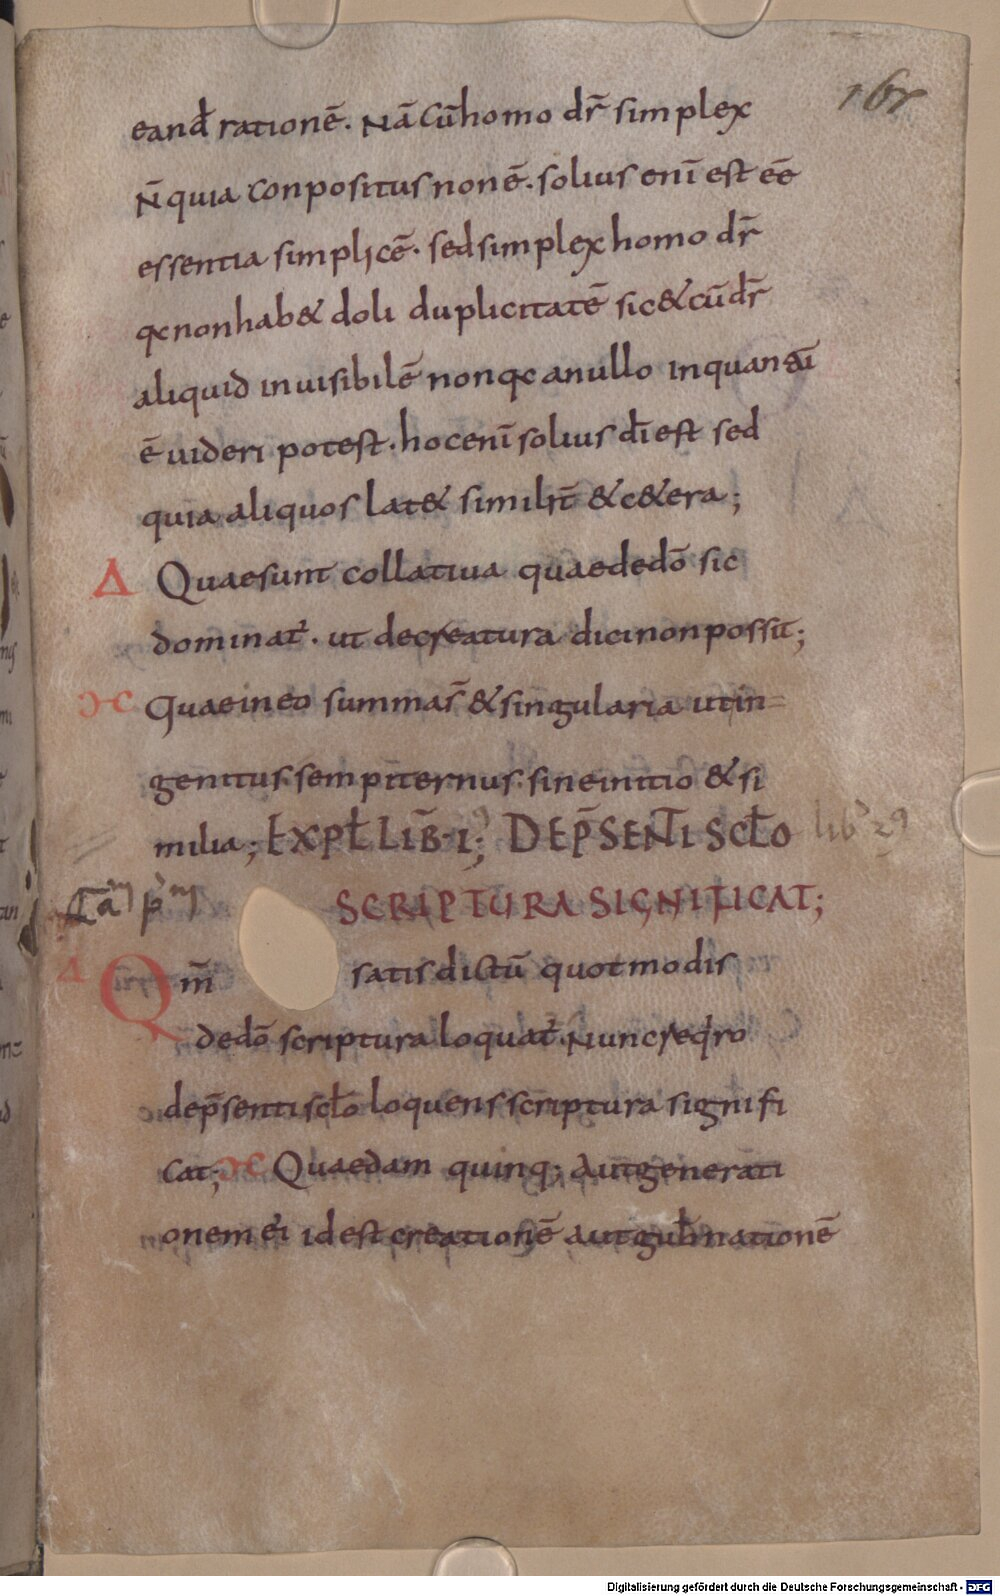 165
eand̄ rationē. Nā cū homo dr̄ simplex
N̄ quia conpositus non ē. solius eni̅ est eē
essentia simplicē. sed simplex homo dr̄
qc non hab& doli duplicitatē sic & cū dr̄
aliquid inuisibilē non qc a nullo inquantū
ē uideri potest. hoc eni̅ solius di̅ est sed
quia aliquos lat& similit̄ & c&era;
Δ Quae sunt collatiua quae de dō sic
dominat̄. ut de creatura dici non possū;
Quae in eo summa s̄ & singularia ut in
genitus. sempiternus. sine initio & si
milia; EXPL̄ LIB̄. I; DE P̄SENTI SCL̄O lib' 29
Cam pm SCRIPTURA SIGNIFICAT;
Δ Qm̄ satis dictū quot modis
de dō scriptura loquat̄. Nunc reqro
de p̄senti scl̄o loquens scriptura signifi
cat; Quaedam quinq; Aut generati
onem ei id est creationē aut gub̄nationē
Digitalisierung gefördert durch die Deutsche Forschungsgemeinschaft - DFG